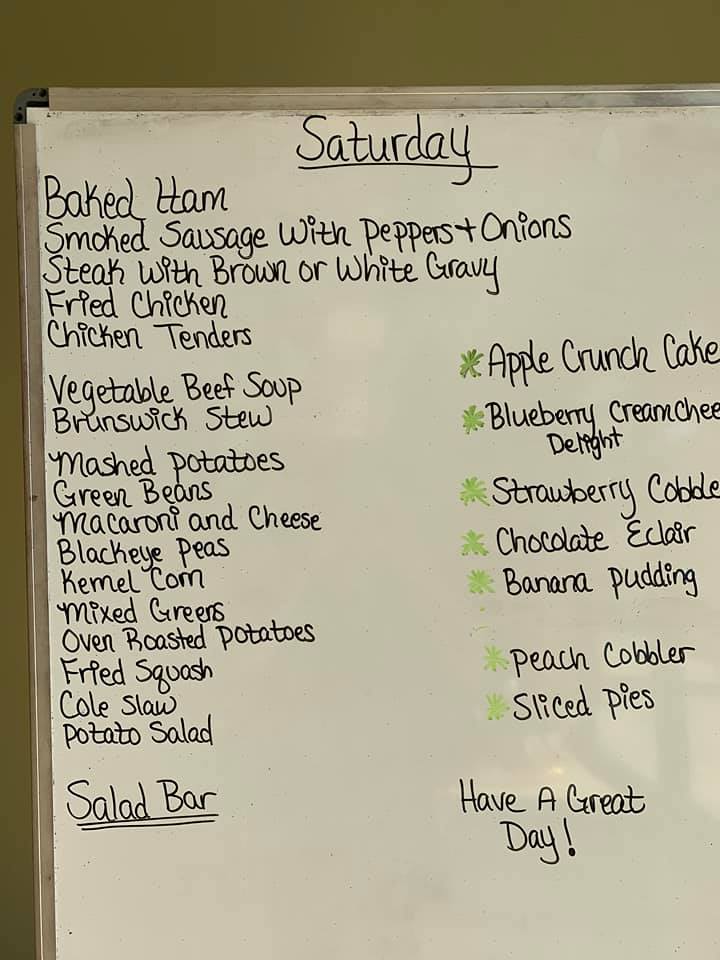 Saturday
Baked Ham
Smoked Sausage With Peppers + Onions
Steak With Brown or White Gravy
Fried Chicken
Chicken Tenders
Vegetable Beef Soup
Brunswick Stew
Mashed Potatoes
Green Beans
Macaroni and Cheese
Blackeye Peas
Kernel Corn
Mixed Greens
Oven Roasted Potatoes
Fried Squash
Cole Slaw
Potato Salad
Salad Bar
Apple Crunch Cake
Blueberry Creamchee
Delight
Strawberry Cobble
Chocolate Eclair
Banana Pudding
Peach Cobbler
Sliced Pies
Have A Great
Day!